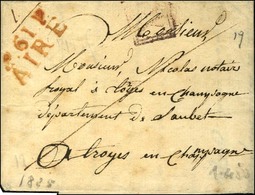 P.61.P.
AIRE
Monsieur
19
Monsieur Nicolas notaire
royal à
en Champagne
département de Laubet
A troyes en Champagne
1825